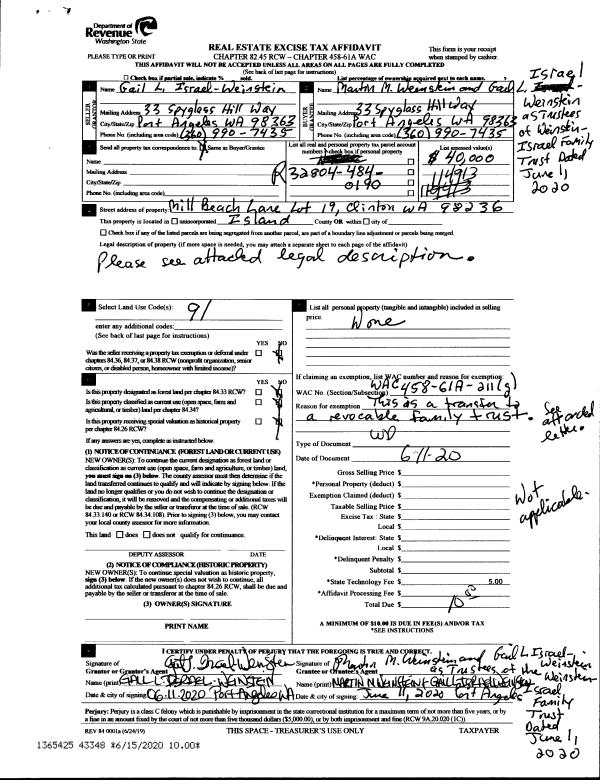 Department of
Revenue
Washington State
PLEASE TYPE OR PRINT
REAL ESTATE EXCISE TAX AFFIDAVIT
CHAPTER 82.45 RCW – CHAPTER 458-61A WAC
This form is your receipt
when stamped by cashier.
THIS AFFIDAVIT WILL NOT BE ACCEPTED UNLESS ALL AREAS ON ALL PAGES ARE FULLY COMPLETED
(See back of last page for instructions)
Check box if partial sale, indicate % sold.
List percentage of ownership acquired next to each name.
SELLER GRANTOR
Name Gail L. Israel-Weinstein
Mailing Address 33 Spyglass Hill Way
City/State/Zip Port Angeles WA 98363
Phone No. (including area code) (360) 990-7435
BUYER GRANTEE
Name Martin M. Weinstein and Gail L. Israel-
Weinstein
as Trustees
of Weinstein-
Israel Family
Trust Dated
June 1,
2020
Mailing Address 33 Spyglass Hill Way
City/State/Zip Port Angeles WA 98363
Phone No. (including area code) (360) 990-7435
Send all property tax correspondence to: Same as Buyer/Grantee
Name
Mailing Address
City/State/Zip
Phone No. (including area code)
List all real and personal property tax parcel account
numbers – check box if personal property
R32804-484-
0190
List assessed value(s)
$40,000
114913
Street address of property: Mill Beach Lane Lot 19, Clinton WA 98236
This property is located in unincorporated Island County OR within city of
Check box if any of the listed parcels are being segregated from another parcel, are part of a boundary line adjustment or parcels being merged.
Legal description of property (if more space is needed, you may attach a separate sheet to each page of the affidavit)
Please see attached legal description.
Select Land Use Code(s):
91
enter any additional codes:
(See back of last page for instructions)
YES NO
Was the seller receiving a property tax exemption or deferral under
chapters 84.36, 84.37, or 84.38 RCW (nonprofit organization, senior
citizen, or disabled person, homeowner with limited income)?
YES NO
Is this property designated as forest land per chapter 84.33 RCW?
Is this property classified as current use (open space, farm and
agricultural, or timber) land per chapter 84.34?
Is this property receiving special valuation as historical property
per chapter 84.26 RCW?
If any answers are yes, complete as instructed below.
(1) NOTICE OF CONTINUANCE (FOREST LAND OR CURRENT USE)
NEW OWNER(S): To continue the current designation as forest land or
classification as current use (open space, farm and agriculture, or timber) land,
you must sign on (3) below. The county assessor must then determine if the
land transferred continues to qualify and will indicate by signing below. If the
land no longer qualifies or you do not wish to continue the designation or
classification, it will be removed and the compensating or additional taxes will
be due and payable by the seller or transferor at the time of sale. (RCW
84.33.140 or RCW 84.34.108). Prior to signing (3) below, you may contact
your local county assessor for more information.
This land does does not qualify for continuance.
DEPUTY ASSESSOR DATE
(2) NOTICE OF COMPLIANCE (HISTORIC PROPERTY)
NEW OWNER(S): To continue special valuation as historic property,
sign (3) below. If the new owner(s) does not wish to continue, all
additional tax calculated pursuant to chapter 84.26 RCW, shall be due and
payable by the seller or transferor at the time of sale.
(3) OWNER(S) SIGNATURE
PRINT NAME
List all personal property (tangible and intangible) included in selling
price.
None
If claiming an exemption, list WAC number and reason for exemption:
WAC No. (Section/Subsection) WAC 458-61A-211(g)
Reason for exemption This is a transfer to
a revocable family trust.
See
attached
letter.
Type of Document WD
Date of Document 6-11-20
Gross Selling Price $
*Personal Property (deduct) $
Exemption Claimed (deduct) $
Taxable Selling Price $
Excise Tax : State $
Local $
*Delinquent Interest: State $
Local $
*Delinquent Penalty $
Subtotal $
*State Technology Fee $ 5.00
*Affidavit Processing Fee $
Total Due $ 10.00
Not
applicable.
A MINIMUM OF $10.00 IS DUE IN FEE(S) AND/OR TAX
*SEE INSTRUCTIONS
I CERTIFY UNDER PENALTY OF PERJURY THAT THE FOREGOING IS TRUE AND CORRECT.
Signature of
Grantor or Grantor's Agent Gail L. Israel-Weinstein
Name (print) GAIL L. ISRAEL-WEINSTEIN
Date & city of signing: 06.11.2020 Port Angeles WA
Signature of
Grantee or Grantee's Agent Martin M. Weinstein and Gail L. Israel-
Weinstein
as Trustees of the Weinstein-
Israel
Family
Trust
Dated
June 1,
2020
Name (print) MARTIN M. WEINSTEIN & GAIL L. ISRAEL-WEINSTEIN
Date & city of signing: June 11, 2020 Port Angeles
Perjury: Perjury is a class C felony which is punishable by imprisonment in the state correctional institution for a maximum term of not more than five years, or by
a fine in an amount fixed by the court of not more than five thousand dollars ($5,000.00), or by both imprisonment and fine (RCW 9A.20.020 (1C)).
REV 84 0001a (6/24/19)
THIS SPACE - TREASURER'S USE ONLY
TAXPAYER
1365425 43348 *6/15/2020 10.00*